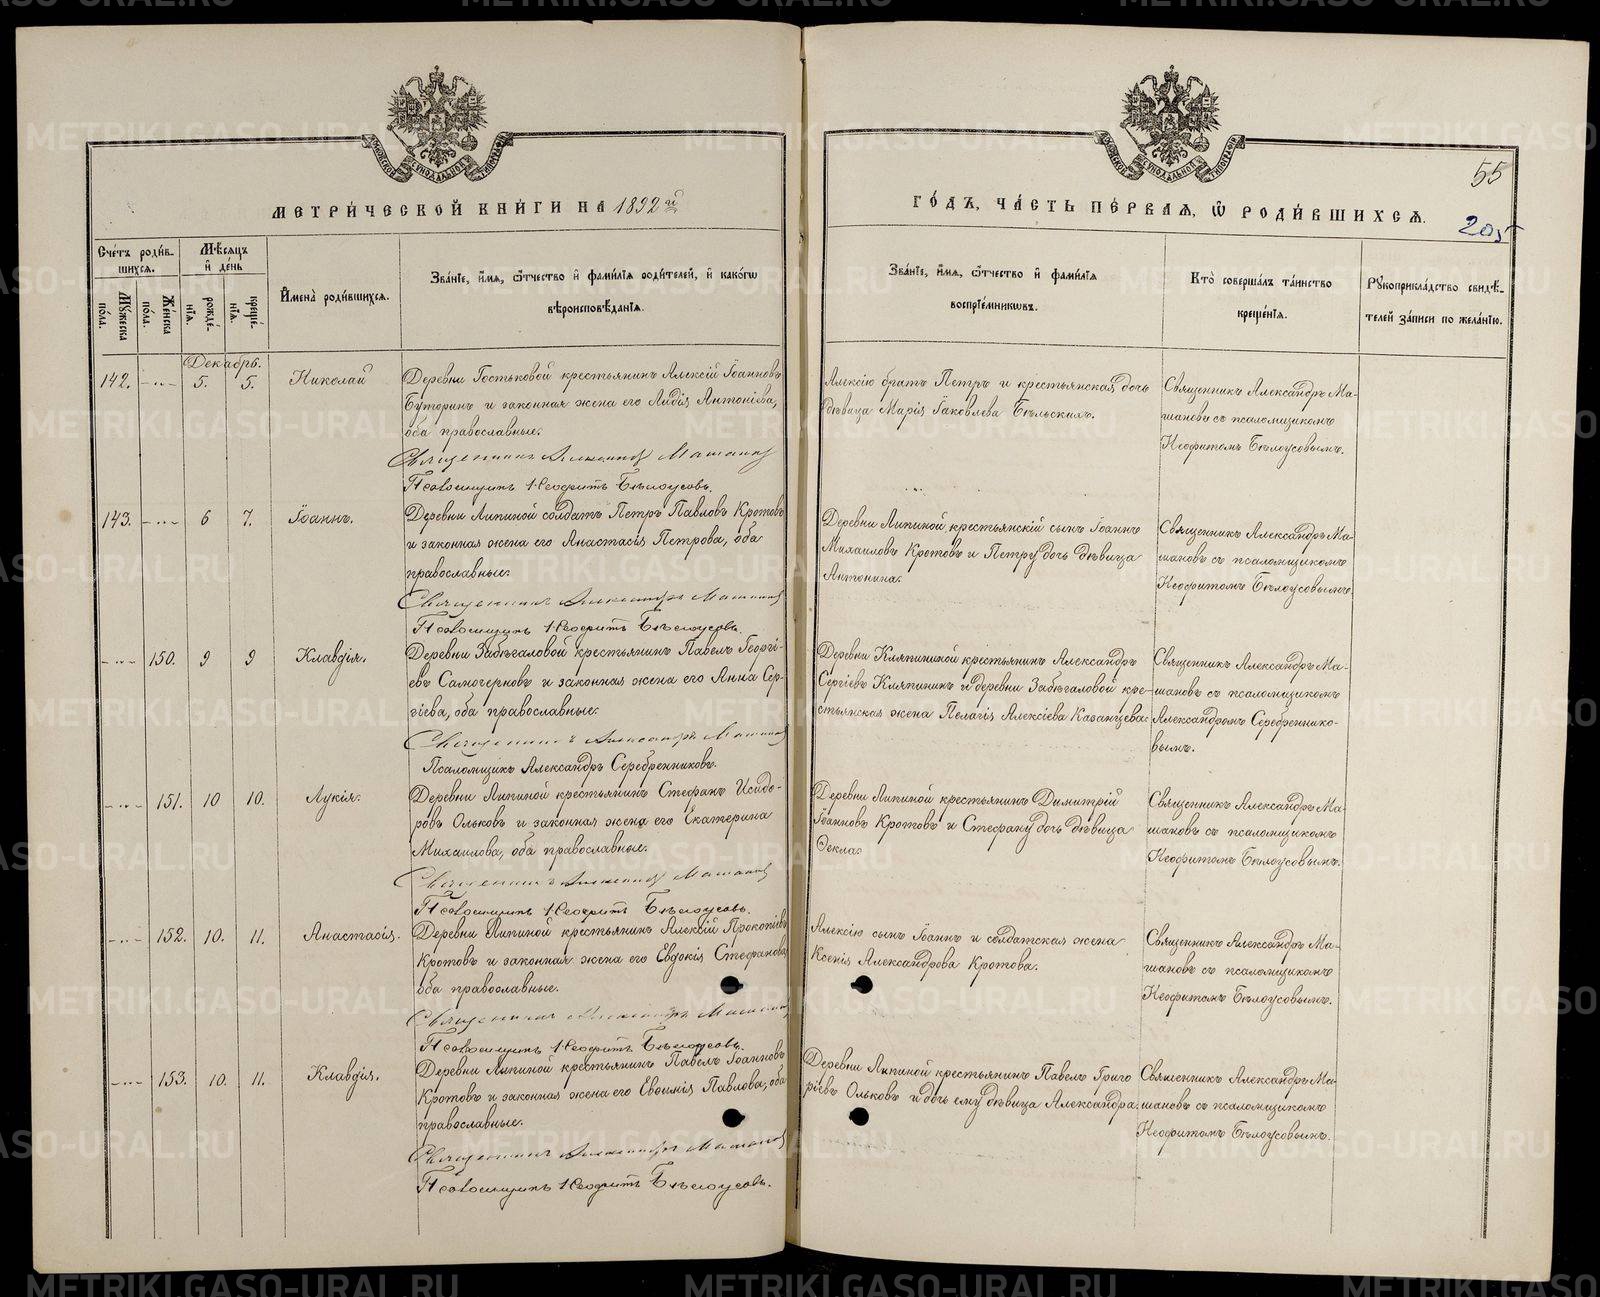 55
205
МЕТРИ́ЧЕСКОЙ КНИ́ГИ НА 1892 й
ГО́ДЪ, ЧА́СТЬ ПЕ́РВАЯ, Ѡ РОДИ́ВШИХСЯ.
Сче́тъ роди́в-
шихся.
Мѣ́сяцъ
и де́нь
Му́жеска
по́ла.
Же́нска
по́ла.
рожде́-
нїя.
креще́-
нїя.
И҆мена̀ роди́вшихся.
Зва́нїе, и҆́мя, ѻ҆́тчество и҆ фами́лїя роди́телей, и҆ како́гѡ
вѣроисповѣ́данїя.
Зва́нїе, и҆́мя, ѻ҆́тчество и҆ фами́лїя
воспрїе́мниковъ.
Кто̀ соверша́лъ та́инство
креще́нїя.
Рꙋкоприкла́дство свидѣ́-
телей за́писи по жела́нїю.
Декабрь.
142. -"- 5. 5. Николай
Деревни Гостьковой крестьянинъ Алексій Іоанновъ
Буторинъ и законная жена его Лидія Антоніева,
оба православные.
Священникъ Александръ Машановъ
Псаломщикъ Неофитъ Бѣлоусовъ.
Алексію братъ Петръ и крестьянская дочь
дѣвица Марія Іаковлева Бѣльскихъ.
Священникъ Александръ Ма-
шановъ съ псаломщикомъ
Неофитомъ Бѣлоусовымъ.
143. -"- 6 7. Іоаннъ.
Деревни Липиной солдатъ Петръ Павловъ Кротовъ
и законная жена его Анастасія Петрова, оба
православные.
Священникъ Александръ Машановъ
Псаломщикъ Неофитъ Бѣлоусовъ.
Деревни Липиной крестьянскій сынъ Іоаннъ
Михаиловъ Кротовъ и Петру дочь дѣвица
Антонина.
Священникъ Александръ Ма-
шановъ съ псаломщикомъ
Неофитомъ Бѣлоусовымъ.
-"- 150. 9 9 Клавдія.
Деревни Забѣгаловой крестьянинъ Павелъ Георгі-
евъ Самочерновъ и законная жена его Анна Сер-
гіева, оба православные.
Священникъ Александръ Машановъ
Псаломщикъ Александръ Серебренниковъ.
Деревни Кляпининой крестьянинъ Александръ
Сергіевъ Кляпининъ и деревни Забѣгаловой кре-
стьянская жена Пелагія Алексіева Казанцева.
Священникъ Александръ Ма-
шановъ съ псаломщикомъ
Александромъ Серебреннико-
вымъ.
-"- 151. 10 10. Лукія.
Деревни Липиной крестьянинъ Стефанъ Исидо-
ровъ Ольковъ и законная жена его Екатерина
Михаилова, оба православные.
Священникъ Александръ Машановъ
Псаломщикъ Неофитъ Бѣлоусовъ.
Деревни Липиной крестьянинъ Димитрій
Іоанновъ Кротовъ и Стефану дочь дѣвица
Ѳекла.
Священникъ Александръ Ма-
шановъ съ псаломщикомъ
Неофитомъ Бѣлоусовымъ.
-"- 152. 10. 11. Анастасія.
Деревни Липиной крестьянинъ Алексій Прокопіевъ
Кротовъ и законная жена его Евдокія Стефанова
оба православные.
Священникъ Александръ Машановъ
Псаломщикъ Неофитъ Бѣлоусовъ.
Алексію сынъ Іоаннъ и солдатская жена
Ксенія Александрова Кротова.
Священникъ Александръ Ма-
шановъ съ псаломщикомъ
Неофитомъ Бѣлоусовымъ.
-"- 153. 10. 11. Клавдія.
Деревни Липиной крестьянинъ Павелъ Іоанновъ
Кротовъ и законная жена его Евѳимія Павлова, оба
православные.
Священникъ Александръ Машановъ
Псаломщикъ Неофитъ Бѣлоусовъ.
Деревни Липиной крестьянинъ Павелъ Григо
ріевъ Ольковъ и дочь ему дѣвица Александра.
Священникъ Александръ Ма-
шановъ съ псаломщикомъ
Неофитомъ Бѣлоусовымъ.
METRIKI.GASO-URAL.RU